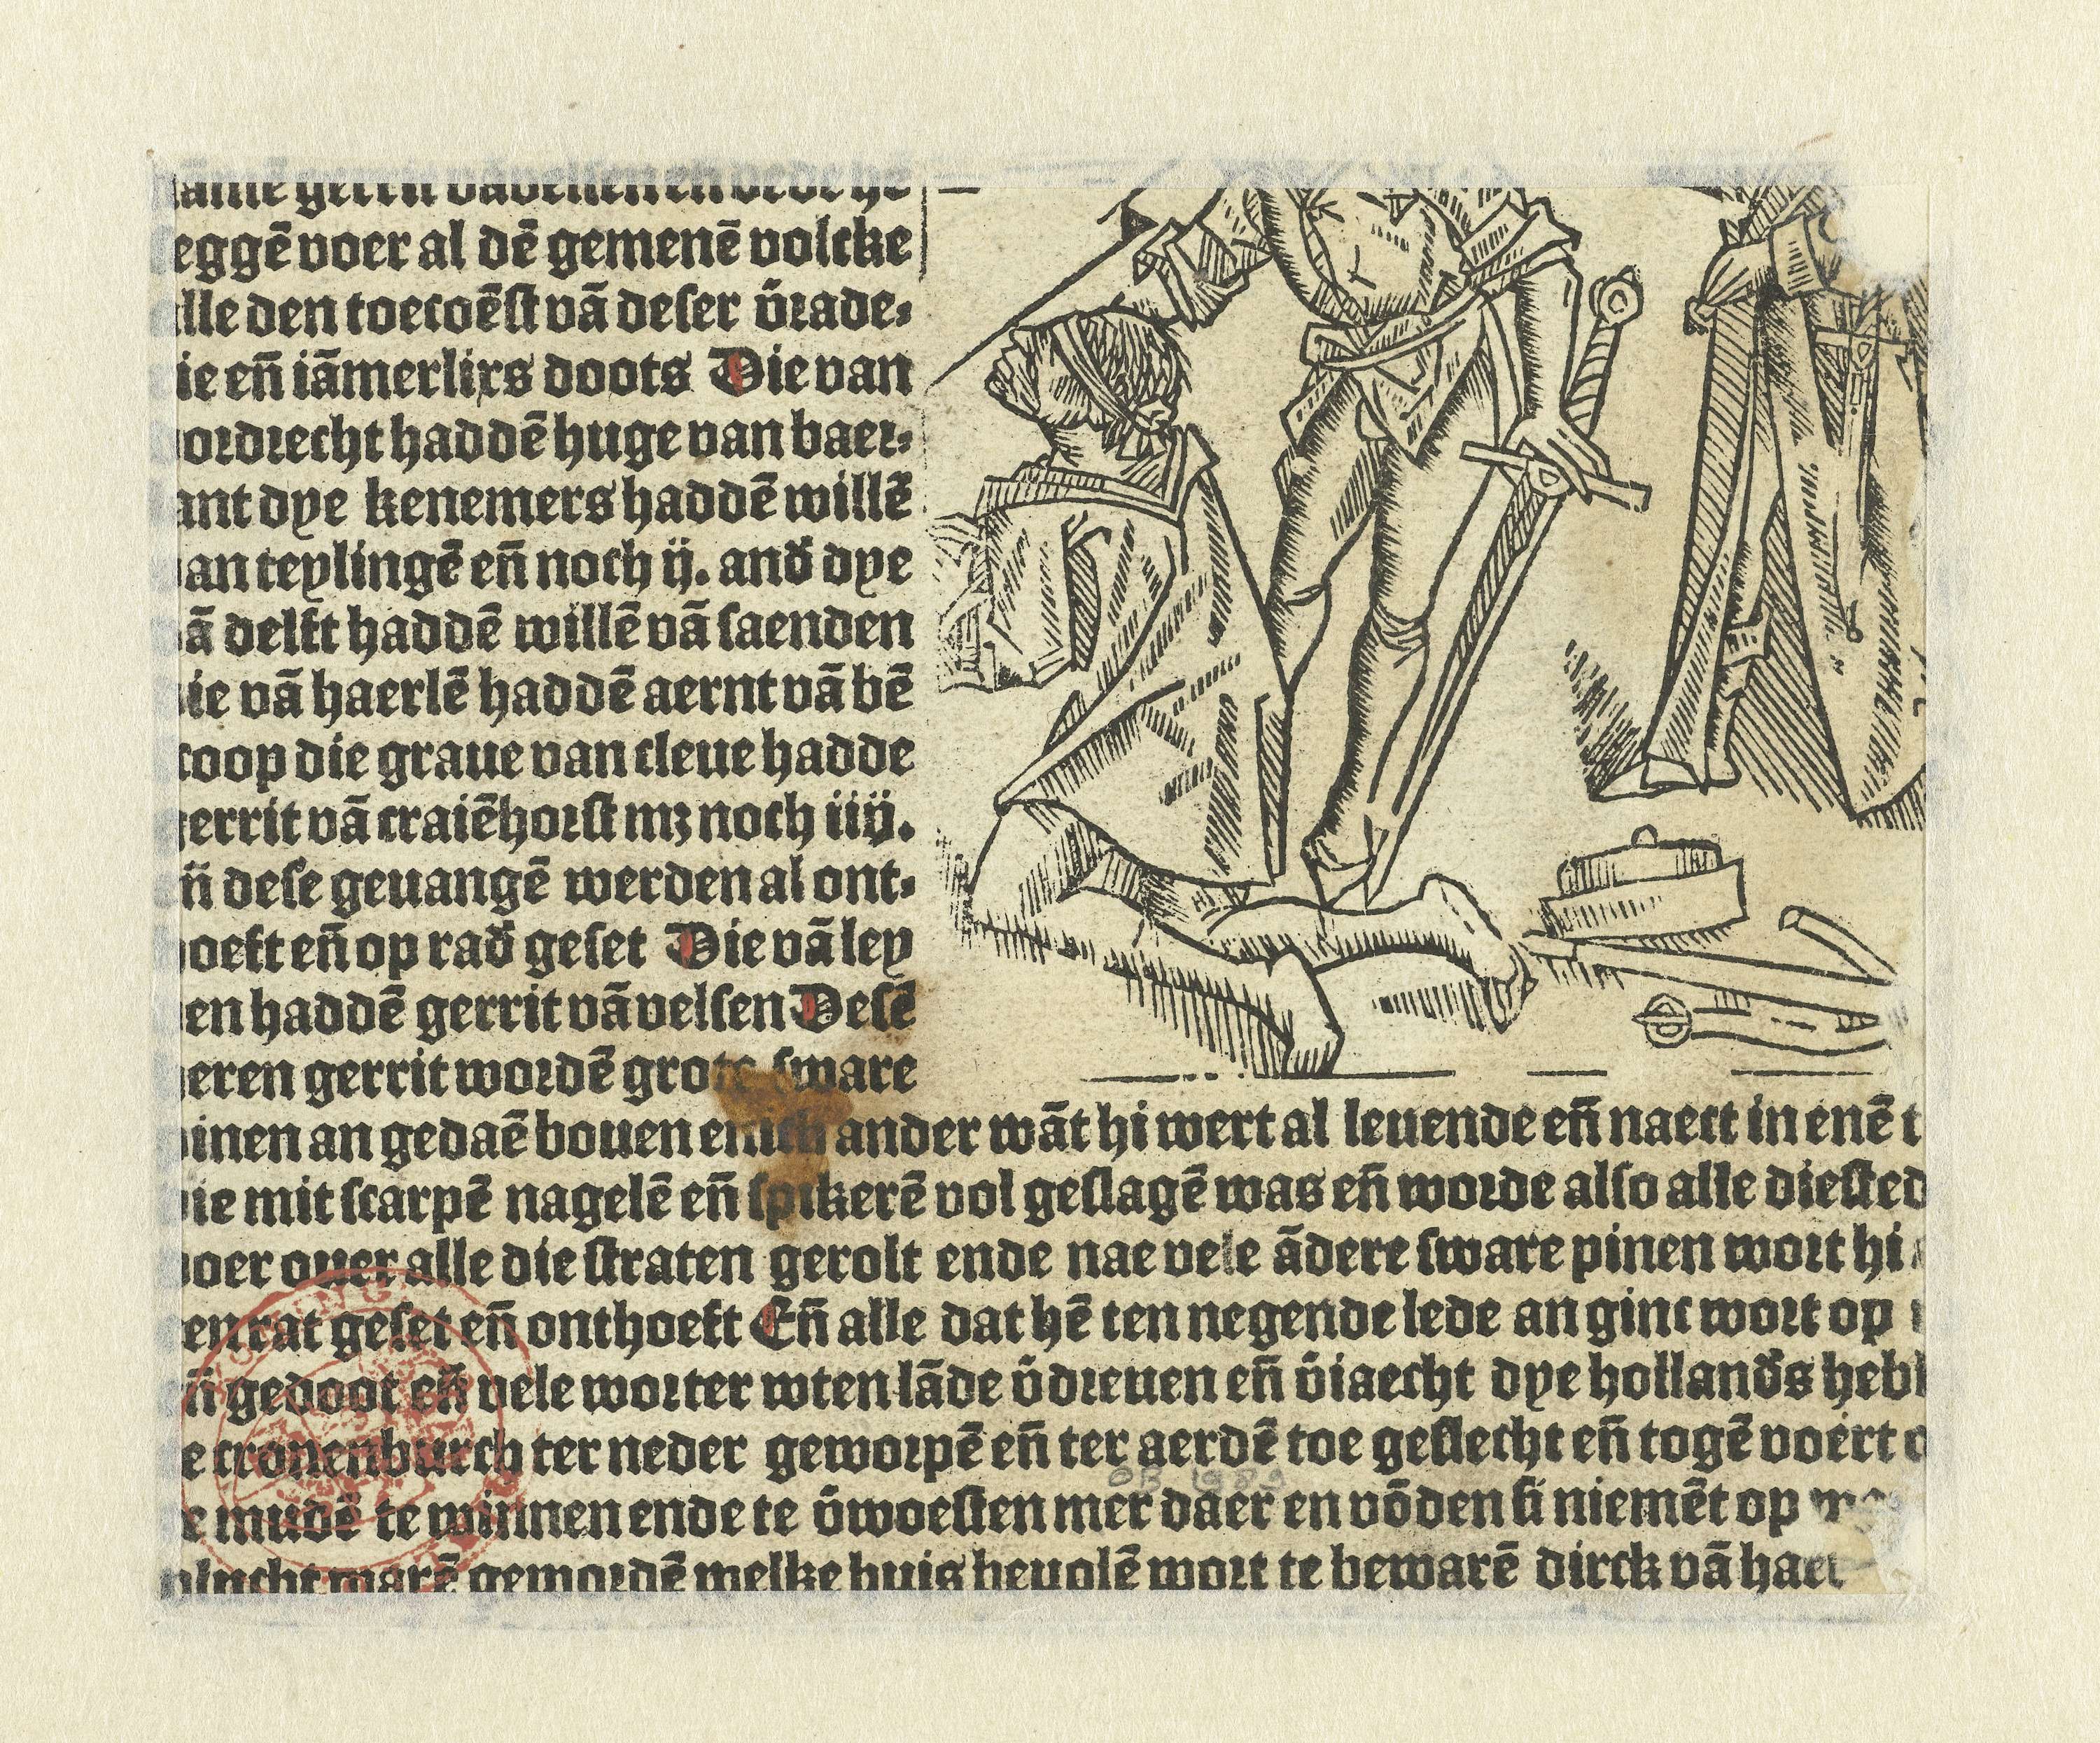 eggē voer al dē gemenē volcke
lle den toecoēst vā deser v̄rade⸗
ie en̄ iāmerlixs doots Die van
ordrecht haddē huge van baer⸗
ant dye kenemers haddē willē
an teylingē en̄ noch ij. and̄ dye
ā delft haddē willē vā saenden
ie vā haerlē haddē aernt vā bē
coop die graue van cleue hadde
errit vā craiēhorst mz noch iiij.
n̄ dese geuangē werden al ont⸗
oeft en̄ op rad̄ geset Die vā ley
en haddē gerrit vā velsen Desē
eren gerrit wordē grote sware
inen an gedaē bouen enich ander wāt hi wert al leuende en̄ naect in enē t
ie mit scarpē nagelē en̄ spikerē vol geslagē was en̄ worde also alle die sted
oer ouer alle die straten gerolt ende nae vele ādere sware pinen wort hi
en rat geset en̄ onthoeft En̄ alle dat hē ten negende lede an ginc wort op
n̄ gedoot en̄ vele worter wten lāde v̄dreuen en̄ v̄iaecht dye holland̄s heb
e cronenburch ter neder geworpē en̄ ter aerdē toe geslecht en̄ togē voert
e mudē te winnen ende te v̄woesten mer daer en vōden si niemēt op
vlucht warē gewordē welke huis beuolē wort te bewarē dirck vā haer